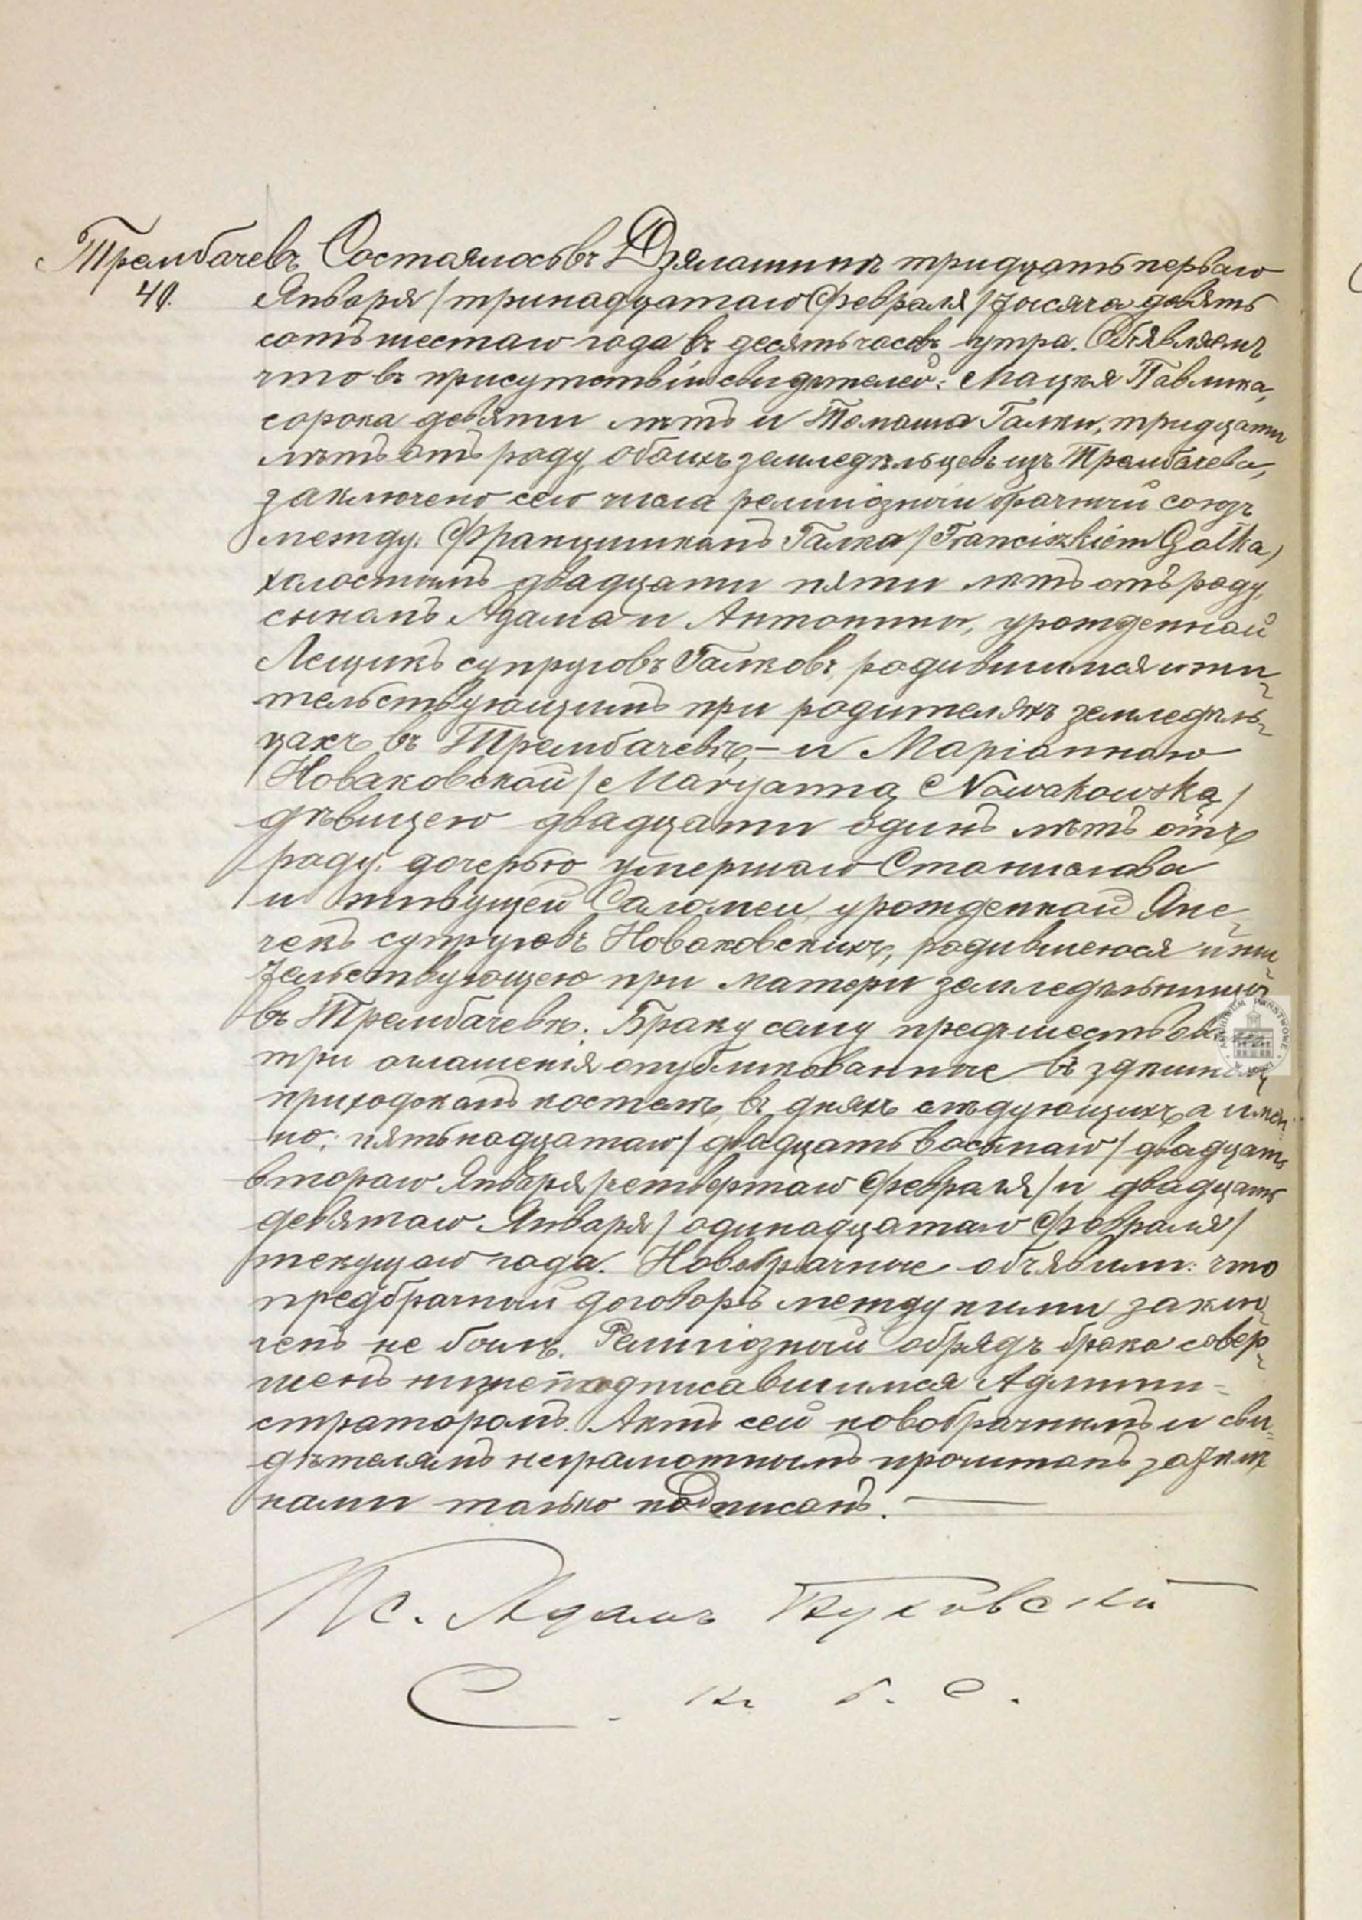 Трембачевъ Состоялось въ Дзялошинѣ тридцать перваго
40. Января /тринадцатаго Февраля/ тысяча девять
сотъ шестаго года въ десять часовъ утра. Объявляемъ
что въ присутствіи свидѣтелей: Мацѣя Павлика,
сорока девяти лѣтъ и Томаша Галки, тридцати
лѣтъ отъ роду, обоихъ земледѣльцевъ изъ Трембачева,
заключено сего числа религіозный брачный союзъ
между: Францишкомъ Галка /Franciszkiem Gałka/
холостымъ двадцати пяти лѣтъ отъ роду,
сыномъ Адама и Антонины, урожденной
Лещикъ супруговъ Галковъ, родившимся и жи-
тельствующимъ при родителяхъ земледѣль-
цахъ въ Трембачевѣ, — и Маріанною
Новаковской /Maryanną Nowakowską/
дѣвицею двадцати одинъ лѣтъ отъ
роду, дочерью умершаго Станислава
и живущей Саломеи урожденной Яне-
чекъ супруговъ Новаковскихъ, родившеюся и жи-
тельствующею при матери земледѣльницы
въ Трембачевѣ. Браку сему предшествова
три оглашенія опубликованные въ здѣшнемъ
приходскомъ костелѣ, въ дняхъ слѣдующихъ, а имен-
но: пятьнадцатаго /двадцать восьмаго/ двадцать
втораго Января /четвертаго Февраля/ и двадцать
девятаго Января /одинадцатаго Февраля/
текущаго года. Новобрачные объявили: что
предбрачный договоръ между ними заклю-
ченъ не былъ. Религіозный обрядъ брака совер-
шенъ нижеподписавшимся Админи-
страторомъ. Актъ сей новобрачнымъ и сви-
дѣтелямъ неграмотнымъ прочитанъ
нами только подписанъ. —
Кс. Адамъ
С. п. б. с.